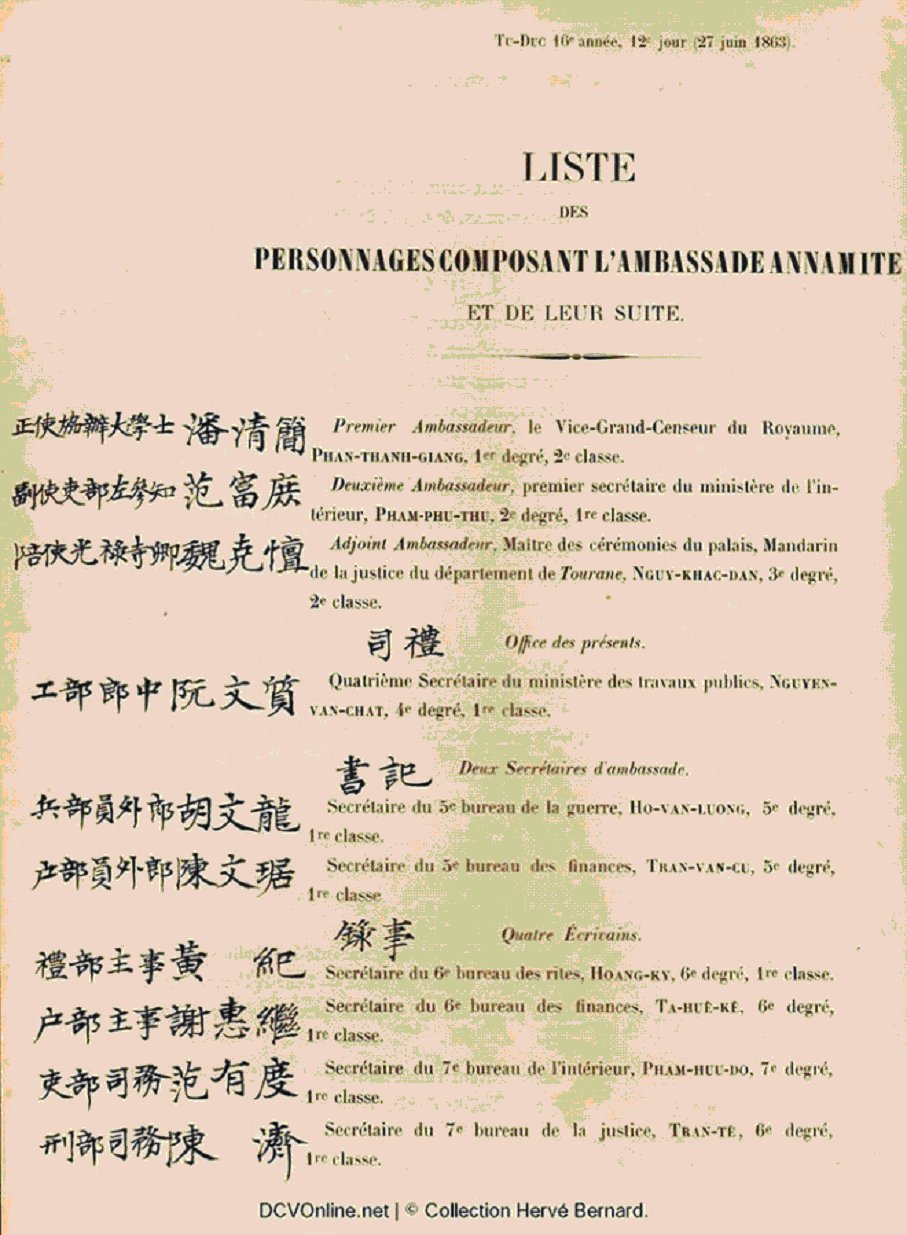 Tu-Duc 16e année, 12e jour (27 juin 1863).
LISTE
DES
PERSONNAGES COMPOSANT L'AMBASSADE ANNAMITE
ET DE LEUR SUITE.
正使協辦大學士 潘清簡 Premier Ambassadeur, le Vice-Grand-Censeur du Royaume,
PHAN-THANH-GIANG, 1er degré, 2e classe.
副使吏部左參知 范富庶 Deuxième Ambassadeur, premier secrétaire du ministère de l'in-
térieur, PHAM-PHU-THU, 2e degré, 1re classe.
陪使光祿寺卿 魏克憻 Adjoint Ambassadeur, Maître des cérémonies du palais, Mandarin
de la justice du département de Tourane, NGUY-KHAC-DAN, 3e degré,
2e classe.
司禮 Office des présents.
工部郎中 阮文質 Quatrième Secrétaire du ministère des travaux publics, NGUYEN-
VAN-CHAT, 4e degré, 1re classe.
書記 Deux Secrétaires d'ambassade.
兵部員外郎 胡文龍 Secrétaire du 5e bureau de la guerre, HO-VAN-LUONG, 5e degré,
1re classe.
户部員外郎 陳文琚 Secrétaire du 5e bureau des finances, TRAN-VAN-CU, 5e degré,
1re classe
錄事 Quatre Écrivains.
禮部主事 黃 紀 Secrétaire du 6e bureau des rites, HOANG-KY, 6e degré, 1re classe.
户部主事 謝惠繼 Secrétaire du 6e bureau des finances, TA-HUÊ-KÊ, 6e degré,
1re classe.
吏部司務 范有慶 Secrétaire du 7e bureau de l'intérieur, PHAM-HUU-DO, 7e degré,
1re classe.
刑部司務 陳 濟 Secrétaire du 7e bureau de la justice, TRAN-TÊ, 6e degré,
1re classe.
DCVOnline.net | © Collection Hervé Bernard.